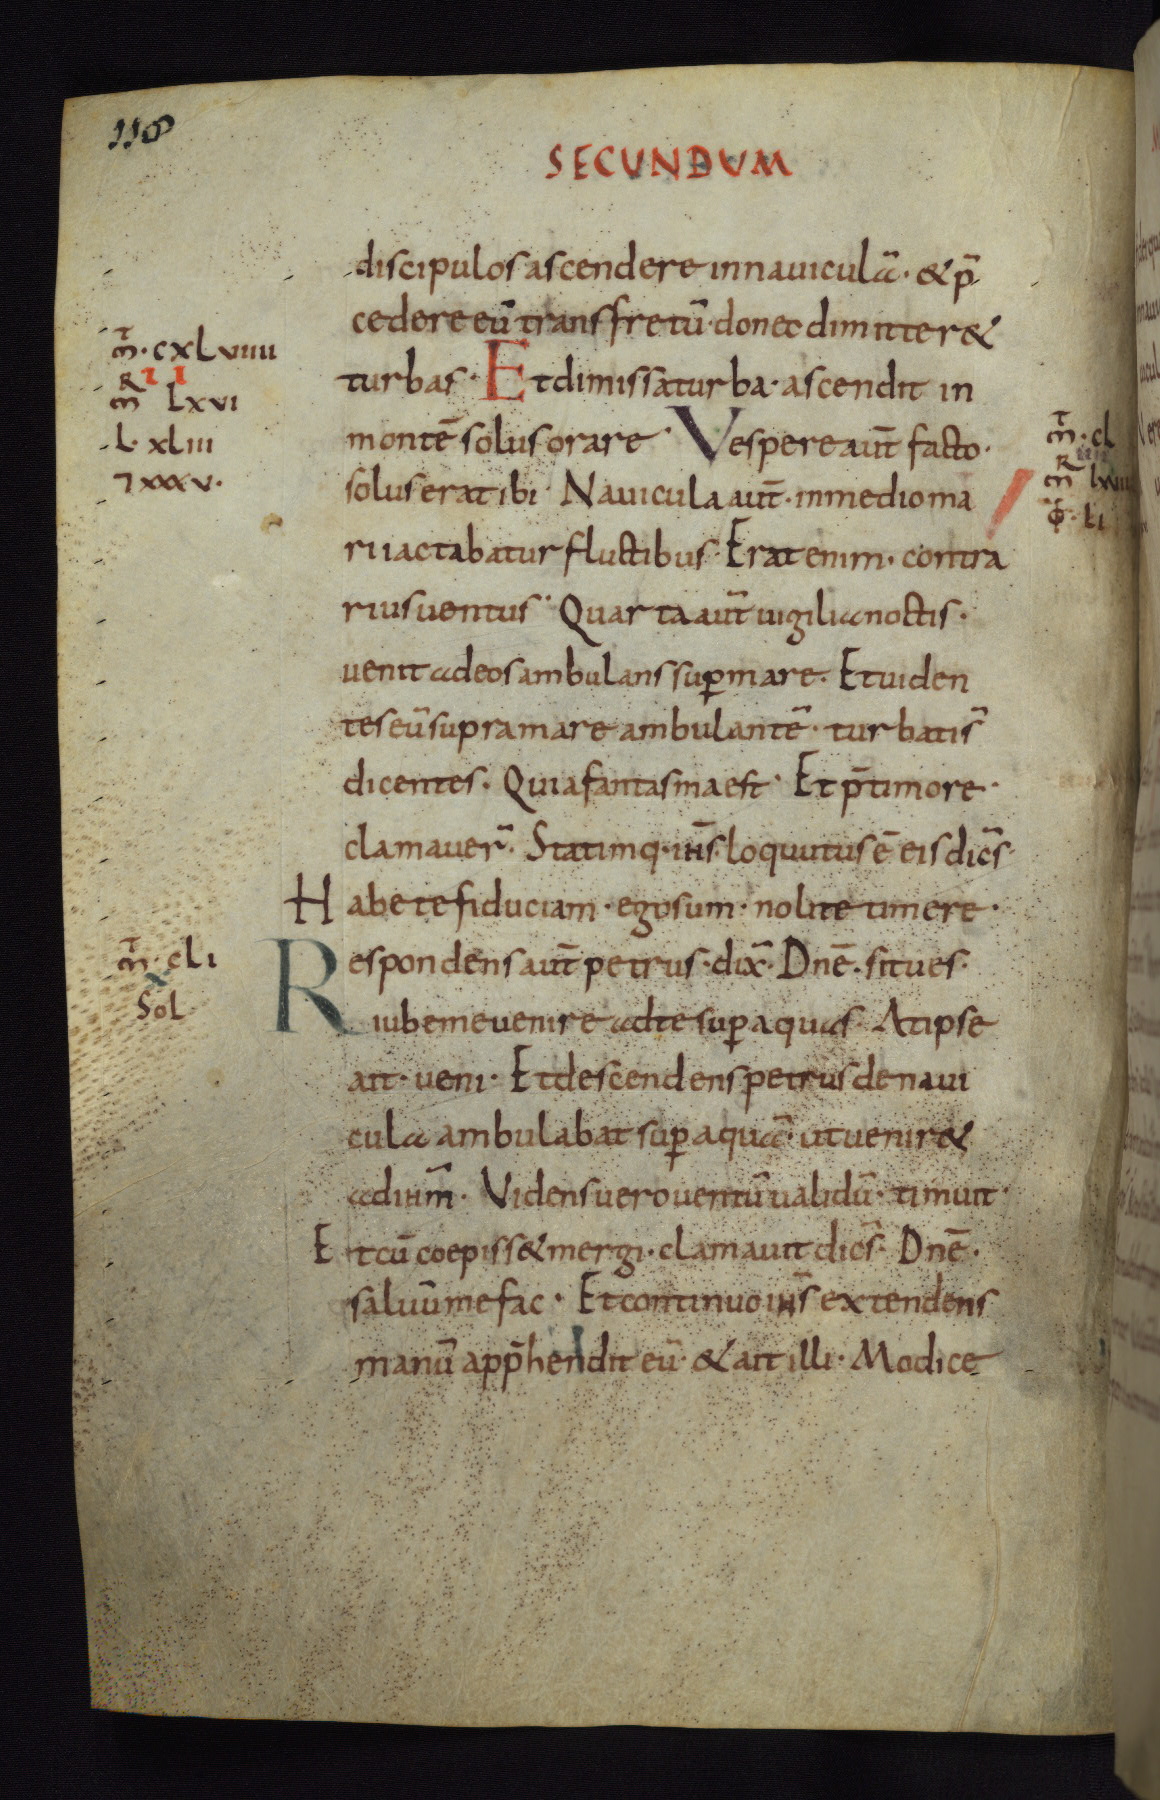 118
SECUNDUM
discipulos ascendere in nauiculā · & p̄
cedere eū trans fretū · donec dimitter&
m̄ · cxlviiii
turbas · Et dimissa turba · ascendit in
R 1 1
m̄ lxvi
montē solus orare · Vespere aut̄ facto ·
L · xliii
m̄ · cl
solus erat ibi · Nauicula aut̄ · in medio ma
⁊ xxxv ·
R
m̄
· li
ri iactabatur fluctibus · Erat enim · contra
rius uentus · Quarta aut̄ uigilia noctis ·
uenit ad eos ambulans sup mare · Et uiden
tes eū supra mare ambulantē · turbatis̄
dicentes · Quia fantasma est · Et p̄ timore ·
clamauer̄ · Statimq · ih̄s · loquutus ē eis dic̄s ·
Habete fiduciam · ego sum · nolite timere ·
m̄ · cli
Respondens aut̄ petrus · dix̄ · Dn̄e · si tu es ·
Sol
iube me uenire ad te sup aquas · At ipse
ait · ueni · Et descendens petrus de naui
cula ambulabat sup aquā · ut uenir&
ad ih̄m · Videns uero uentū ualidū · timuit ·
Et cū coepiss& mergi · clamauit dic̄s · Dn̄e ·
saluū me fac · Et continuo ih̄s extendens
manū app̄hendit eū · & ait illi · Modice